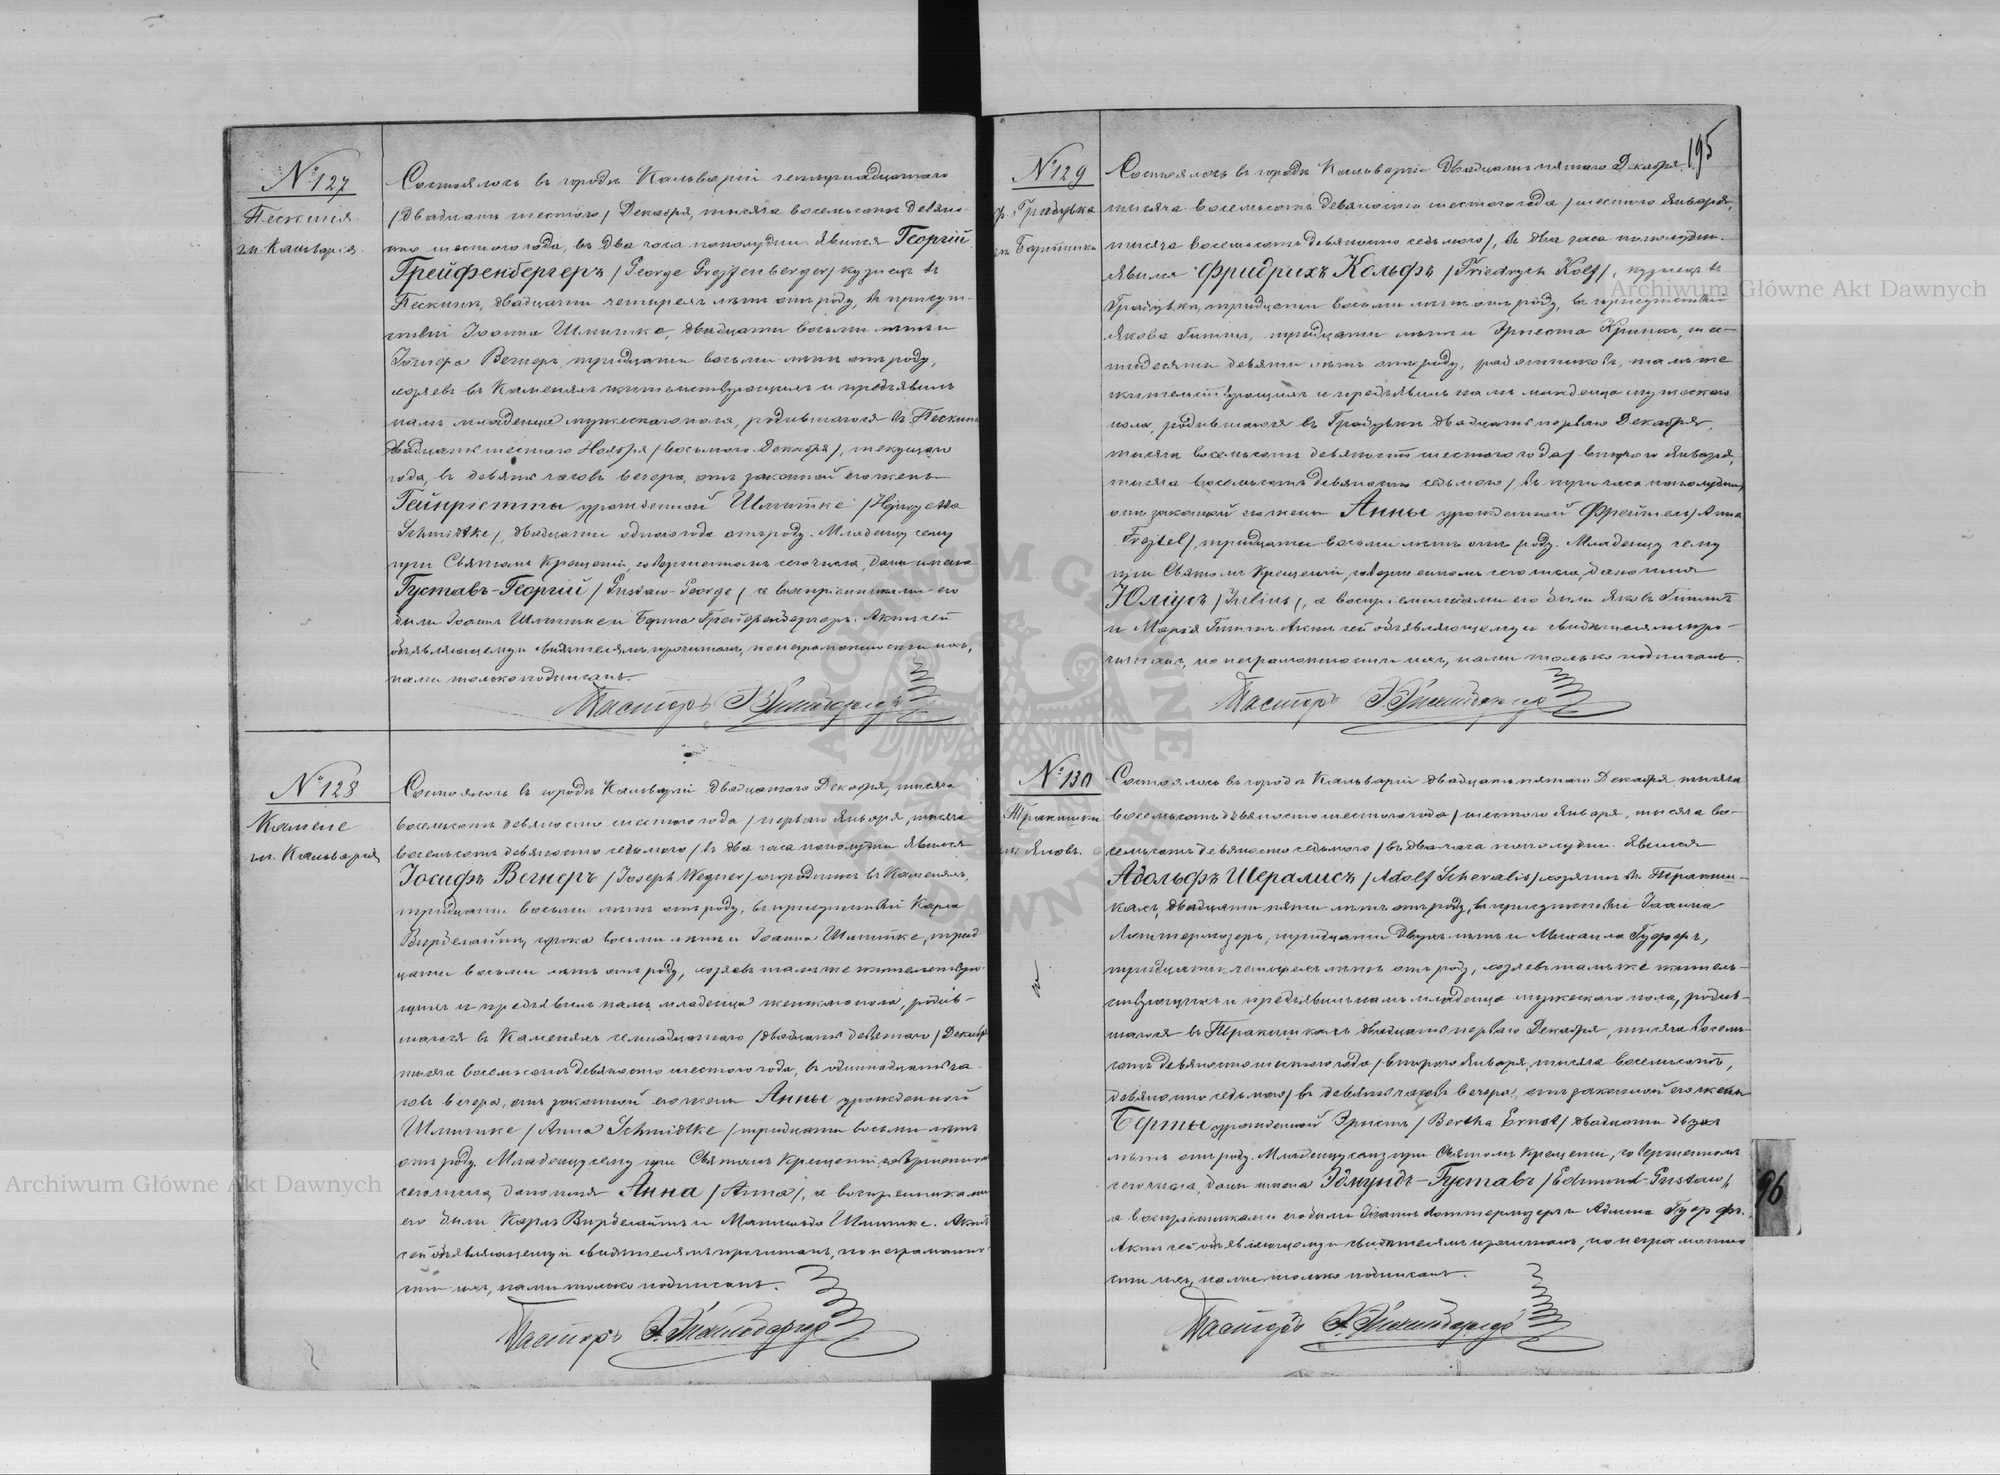 № 127
Пескиня
гм. Кальварія.
Состоялось въ городѣ Кальваріи четырнадцатаго
/двадцать шестого/ Декабря, тысяча восемьсотъ девяно-
сто шестого года, въ два часа пополудни. Явился Георгій
Грейфенбергеръ /George Grejfenberger/ кузнецъ въ
Пескинѣ, двадцати четырехъ лѣтъ отъ роду, въ присут-
ствіи Іоанна Шмитке, двадцати восьми лѣтъ и
Іосифа Вегнеръ, тридцати восьми лѣтъ отъ роду,
хозяевъ въ Каменяхъ жительствующихъ и предъявилъ
намъ младенца мужескаго пола, родившагося въ Пескинѣ
двадцать шестого Ноября /восьмого Декабря/, текущаго
года, въ девять часовъ вечера, отъ законной его жены
Гейнріетты урожденной Шмитке /Hejnryetta
Schmidtke/, двадцати одного года отъ роду. Младенцу сему
при Святомъ Крещеніи, совершенномъ сего числа, даны имена
Густавъ-Георгій /Gustaw-George/, а воспріемниками его
были Іоаннъ Шмитке и Берта Грейфенбергеръ. Актъ сей
объявляющему и свидѣтелямъ прочитанъ, по неграмотности ихъ,
нами только подписанъ.
Пасторъ
№ 128
Камене
гм. Кальварія
Состоялось въ городѣ Кальваріи двадцатаго Декабря, тысяча
восемьсотъ девяносто шестого года /перваго Января, тысяча
восемьсотъ девяносто седьмого/ въ два часа пополудни. Явился
Іосифъ Вегнеръ /Joseph Wegner/ огородникъ въ Каменяхъ,
тридцати восьми лѣтъ отъ роду, въ присутствіи Карла
Вирделайтъ, сорока восьми лѣтъ и Іоанна Шмитке, трид-
цати восьми лѣтъ отъ роду, хозяевъ тамъ же жительствую-
щихъ и предъявилъ намъ младенца женскаго пола, родив-
шагося въ Каменяхъ семнадцатаго /двадцать девятаго/ Декабря
тысяча восемьсотъ девяносто шестого года, въ одиннадцать ча-
совъ вечера, отъ законной его жены Анны урожденной
Шмитке /Anna Schmidtke/ тридцати восьми лѣтъ
отъ роду. Младенцу сему при Святомъ Крещеніи, совершенномъ
сего числа, дано имя Анна /Anna/, а воспріемниками
его были Карлъ Вирделайтъ и Матильда Шмитке. Актъ
сей объявляющему и свидѣтелямъ прочитанъ, по неграмотно-
сти ихъ, нами только подписанъ.
Пасторъ
195
№ 129
Градувка
гм. Бартники
Состоялось въ городѣ Кальваріи двадцать пятаго Декабря,
тысяча восемьсотъ девяносто шестого года /шестого Января,
тысяча восемьсотъ девяносто седьмого/, въ два часа пополудни.
Явился Фридрихъ Кольфъ /Friedrych Kolf/, кузнецъ въ
Градувкѣ, тридцати восьми лѣтъ отъ роду, въ присутствіи
Якова, тридцати лѣтъ и Эрнеста, шес-
тидесяти девяти лѣтъ отъ роду, работниковъ, тамъ же
жительствующихъ и предъявилъ намъ младенца мужескаго
пола, родившагося въ Градувкѣ двадцать перваго Декабря,
тысяча восемьсотъ девяносто шестого года /второго Января,
тысяча восемьсотъ девяносто седьмого/, въ три часа пополудни,
отъ законной его жены Анны урожденной Фрейтель /Anna
Frejtel/, тридцати восьми лѣтъ отъ роду. Младенцу сему
при Святомъ Крещеніи, совершенномъ сего числа, дано имя
Юліусъ /Julius/, а воспріемниками его были Яковъ
и Марія. Актъ сей объявляющему и свидѣтелямъ про-
читанъ, по неграмотности ихъ, нами только подписанъ.
Пасторъ
№ 130
Тракишки
гм. Яновъ.
Состоялось въ городѣ Кальваріи двадцать пятаго Декабря тысяча
восемьсотъ девяносто шестого года /шестого Января, тысяча во-
семьсотъ девяносто седьмого/ въ два часа пополудни. Явился
Адольфъ Шералисъ /Adolf Scheralis/ хозяинъ въ Тракиш-
кахъ, двадцати пяти лѣтъ отъ роду, въ присутствіи Іоанна
тридцати двухъ лѣтъ и Михаила
тридцати четырехъ лѣтъ отъ роду, хозяевъ тамъ же житель-
ствующихъ и предъявилъ намъ младенца мужескаго пола, родив-
шагося въ Тракишкахъ двадцать перваго Декабря, тысяча восемь-
сотъ девяносто шестого года /второго Января, тысяча восемьсотъ,
девяносто седьмого/ въ девять часовъ вечера, отъ законной его жены
Берты урожденной Эрнстъ /Bertha Ernst/ двадцати двухъ
лѣтъ отъ роду. Младенцу сему при Святомъ Крещеніи, совершенномъ
сего числа, даны имена Эдмундъ-Густавъ /Edmond-Gustaw/,
а воспріемниками его были Іоаннъ и
Актъ сей объявляющему и свидѣтелямъ прочитанъ, по неграмотно-
сти ихъ, нами только подписанъ.
Пасторъ
96
Archiwum Główne Akt Dawnych
Archiwum Główne Akt Dawnych
ARCHIWUM GŁÓWNE AKT DAWNYCH